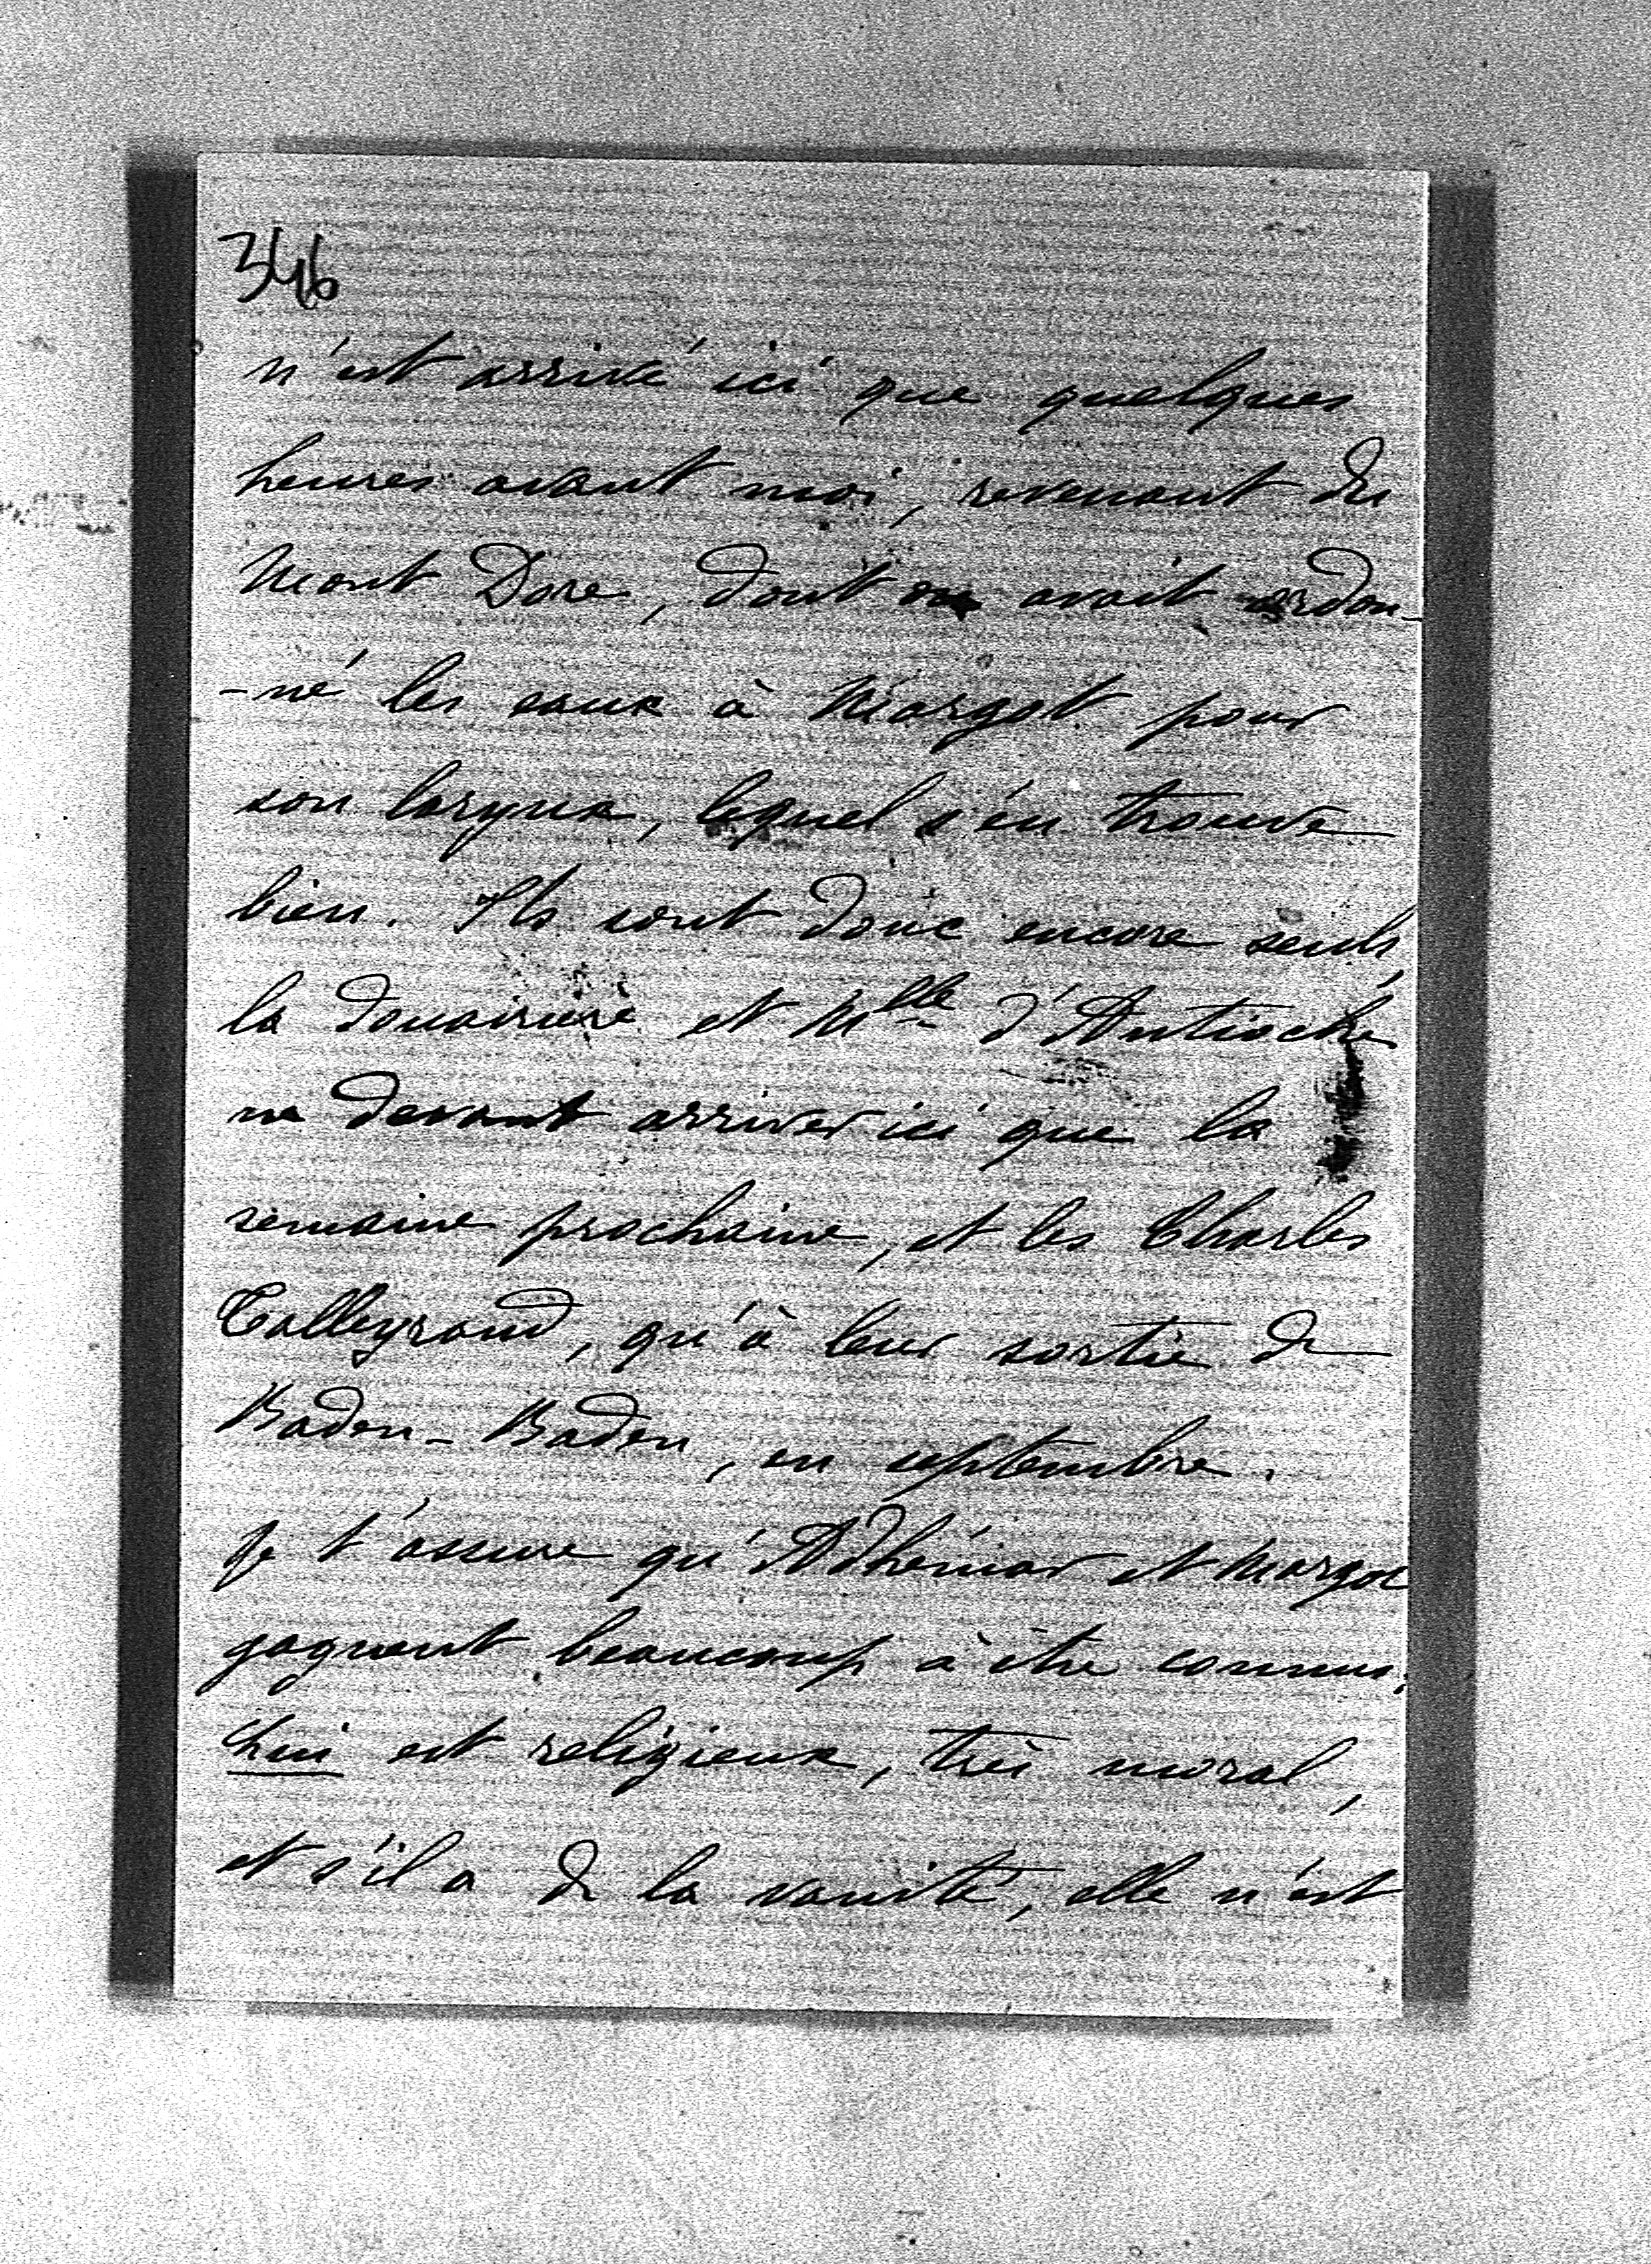 346
n'est arrivé ici que quelques
heures avant moi, revenant du
Mont Dore, dont on avait ordon-
-né les eaux à Margot pour
son larynx, lequel s'en trouve
bien. Ils sont donc encore seuls,
la douairière et Mlle d'Antioche
ne devant arriver ici que la
semaine prochaine, et les Charles
Talleyrand, qu'à leur sortie de
Baden-Baden, en septembre.
Je t'assure qu'Adhémar et Margot
gagnent beaucoup à être connus;
Lui est religieux, très moral,
et s'il a de la vanité, elle n'est